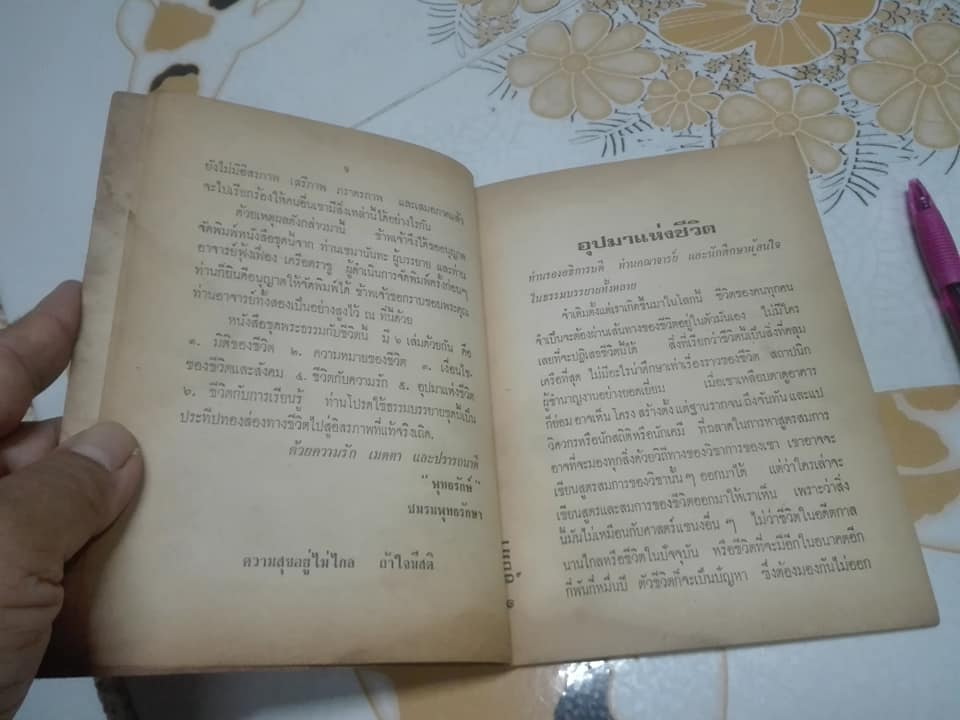 9
ยังไม่มีอิสรภาพ เสรีภาพ ภราดรภาพ และเสมอภาคแล้ว
จะไปเรียกร้องให้คนอื่นเขามีสิ่งเหล่านี้ได้อย่างไรกัน
ด้วยเหตุผลดังกล่าวมานี้ ข้าพเจ้าจึงได้ขออนุญาต
จัดพิมพ์หนังสือชุดนี้จาก ท่านเขมานันทะ ผู้บรรยาย และท่าน
อาจารย์ฟุ้งเฟื่อง เครือตราชู ผู้ดำเนินการจัดพิมพ์ครั้งก่อนๆ
ท่านก็ยินดีอนุญาตให้จัดพิมพ์ได้ ข้าพเจ้าขอกราบขอบพระคุณ
ท่านอาจารย์ทั้งสองเป็นอย่างสูงไว้ ณ ที่นี้ด้วย
หนังสือชุดพระธรรมกับชีวิตนี้ มี ๖ เล่มด้วยกัน คือ
๑. มิติของชีวิต ๒. ความหมายของชีวิต ๓. เงื่อนไข-
ของชีวิตและสังคม ๔. ชีวิตกับความรัก ๕. อุปมาแห่งชีวิต
๖. ชีวิตกับการเรียนรู้ ท่านโปรดใช้ธรรมบรรยายชุดนี้เป็น
ประทีปทองส่องทางชีวิตไปสู่อิสรภาพที่แท้จริงเถิด.
ด้วยความรัก เมตตา และปรารถนาดี
" พุทธรักษ์ "
ชมรมพุทธรักษา
ความสุขอยู่ไม่ไกล ถ้าใจมีสติ
อุปมาแห่งชีวิต
ท่านรองอธิการบดี ท่านคณาจารย์ และนักศึกษาผู้สนใจ
ในธรรมบรรยายทั้งหลาย
จำเดิมตั้งแต่เราเกิดขึ้นมาในโลกนี้ ชีวิตของคนทุกคน
จำเป็นจะต้องผ่านเส้นทางของชีวิตอยู่ในตัวมันเอง ไม่มีใคร
เลยที่จะปฏิเสธชีวิตนี้ได้ สิ่งที่เรียกว่าชีวิตนี้เป็นสิ่งที่คลุม
เครือที่สุด ไม่มีอะไรน่าศึกษาเท่าเรื่องราวของชีวิต สถาปนิก
ผู้ชำนาญงานอย่างยอดเยี่ยม เมื่อเขาเหลือบตาดูอาคาร
ก็ย่อมอาจเห็น โครงสร้างตั้งแต่ฐานรากจนถึงจันทัน และแป
วิศวกรหรือนักสถิติหรือนักเคมี ที่ฉลาดในการหาสูตรสมการ
อาจที่จะมองทุกสิ่งด้วยวิถีทางของวิชาการของเขา เขาอาจจะ
เขียนสูตรสมการของวิชานั้นๆ ออกมาได้ แต่ว่าใครเล่าจะ
เขียนสูตรและสมการของชีวิตออกมาให้เราเห็น เพราะว่าสิ่ง
นี้มันไม่เหมือนกับศาสตร์แขนงอื่น ๆ ไม่ว่าชีวิตในอดีตกาล
นานไกลหรือชีวิตในปัจจุบัน หรือชีวิตที่จะมีอีกในอนาคตอีก
กี่พันกี่หมื่นปี ตัวชีวิตก็จะเป็นปัญหา ซึ่งต้องมองกันไม่ออก